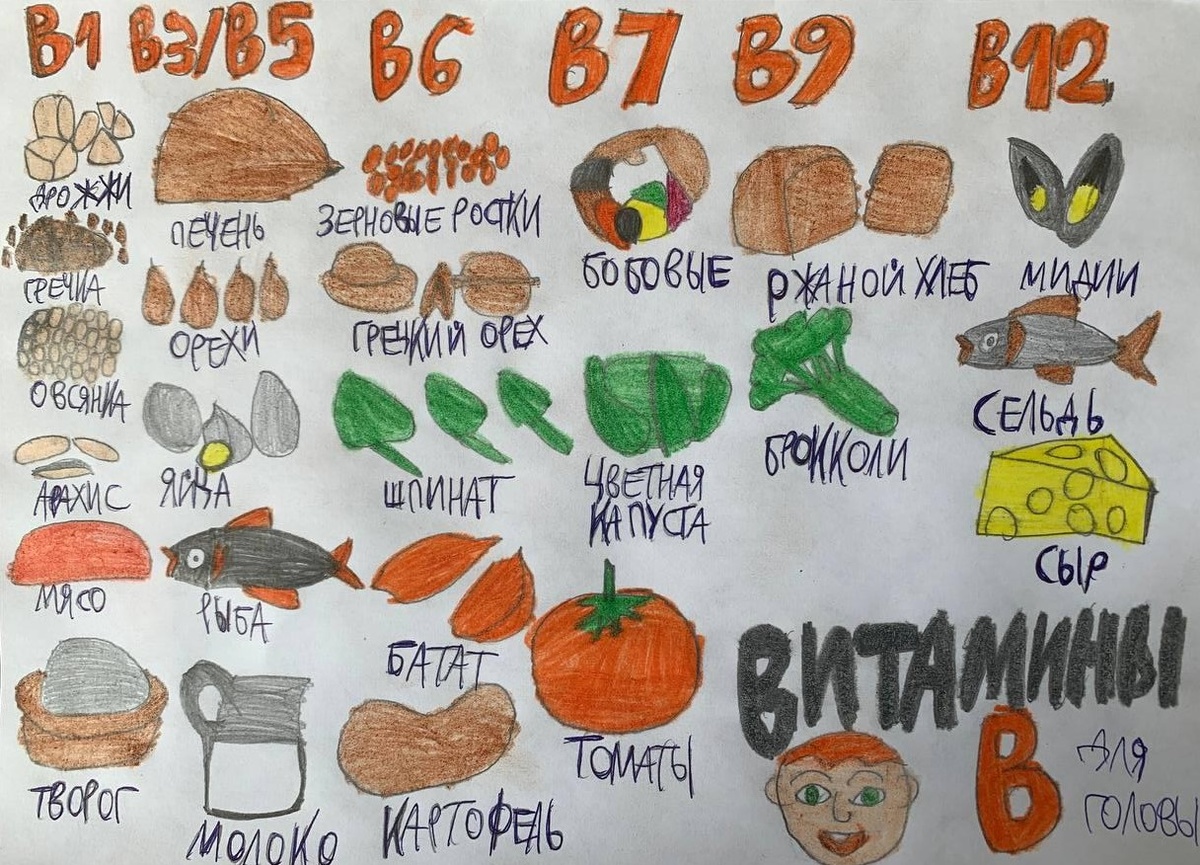 В1 В3/В5 В6 В7 В9 В12
ДРОЖЖИ
ГРЕЧКА
ОВСЯНКА
АРАХИС
МЯСО
ТВОРОГ
ПЕЧЕНЬ
ОРЕХИ
ЯЙЦА
РЫБА
МОЛОКО
ЗЕРНОВЫЕ РОСТКИ
ГРЕЦКИЙ ОРЕХ
ШПИНАТ
БАТАТ
КАРТОФЕЛЬ
БОБОВЫЕ
ЦВЕТНАЯ
КАПУСТА
ТОМАТЫ
РЖАНОЙ ХЛЕБ
БРОККОЛИ
МИДИИ
СЕЛЬДЬ
СЫР
ВИТАМИНЫ
В ДЛЯ
ГОЛОВЫ